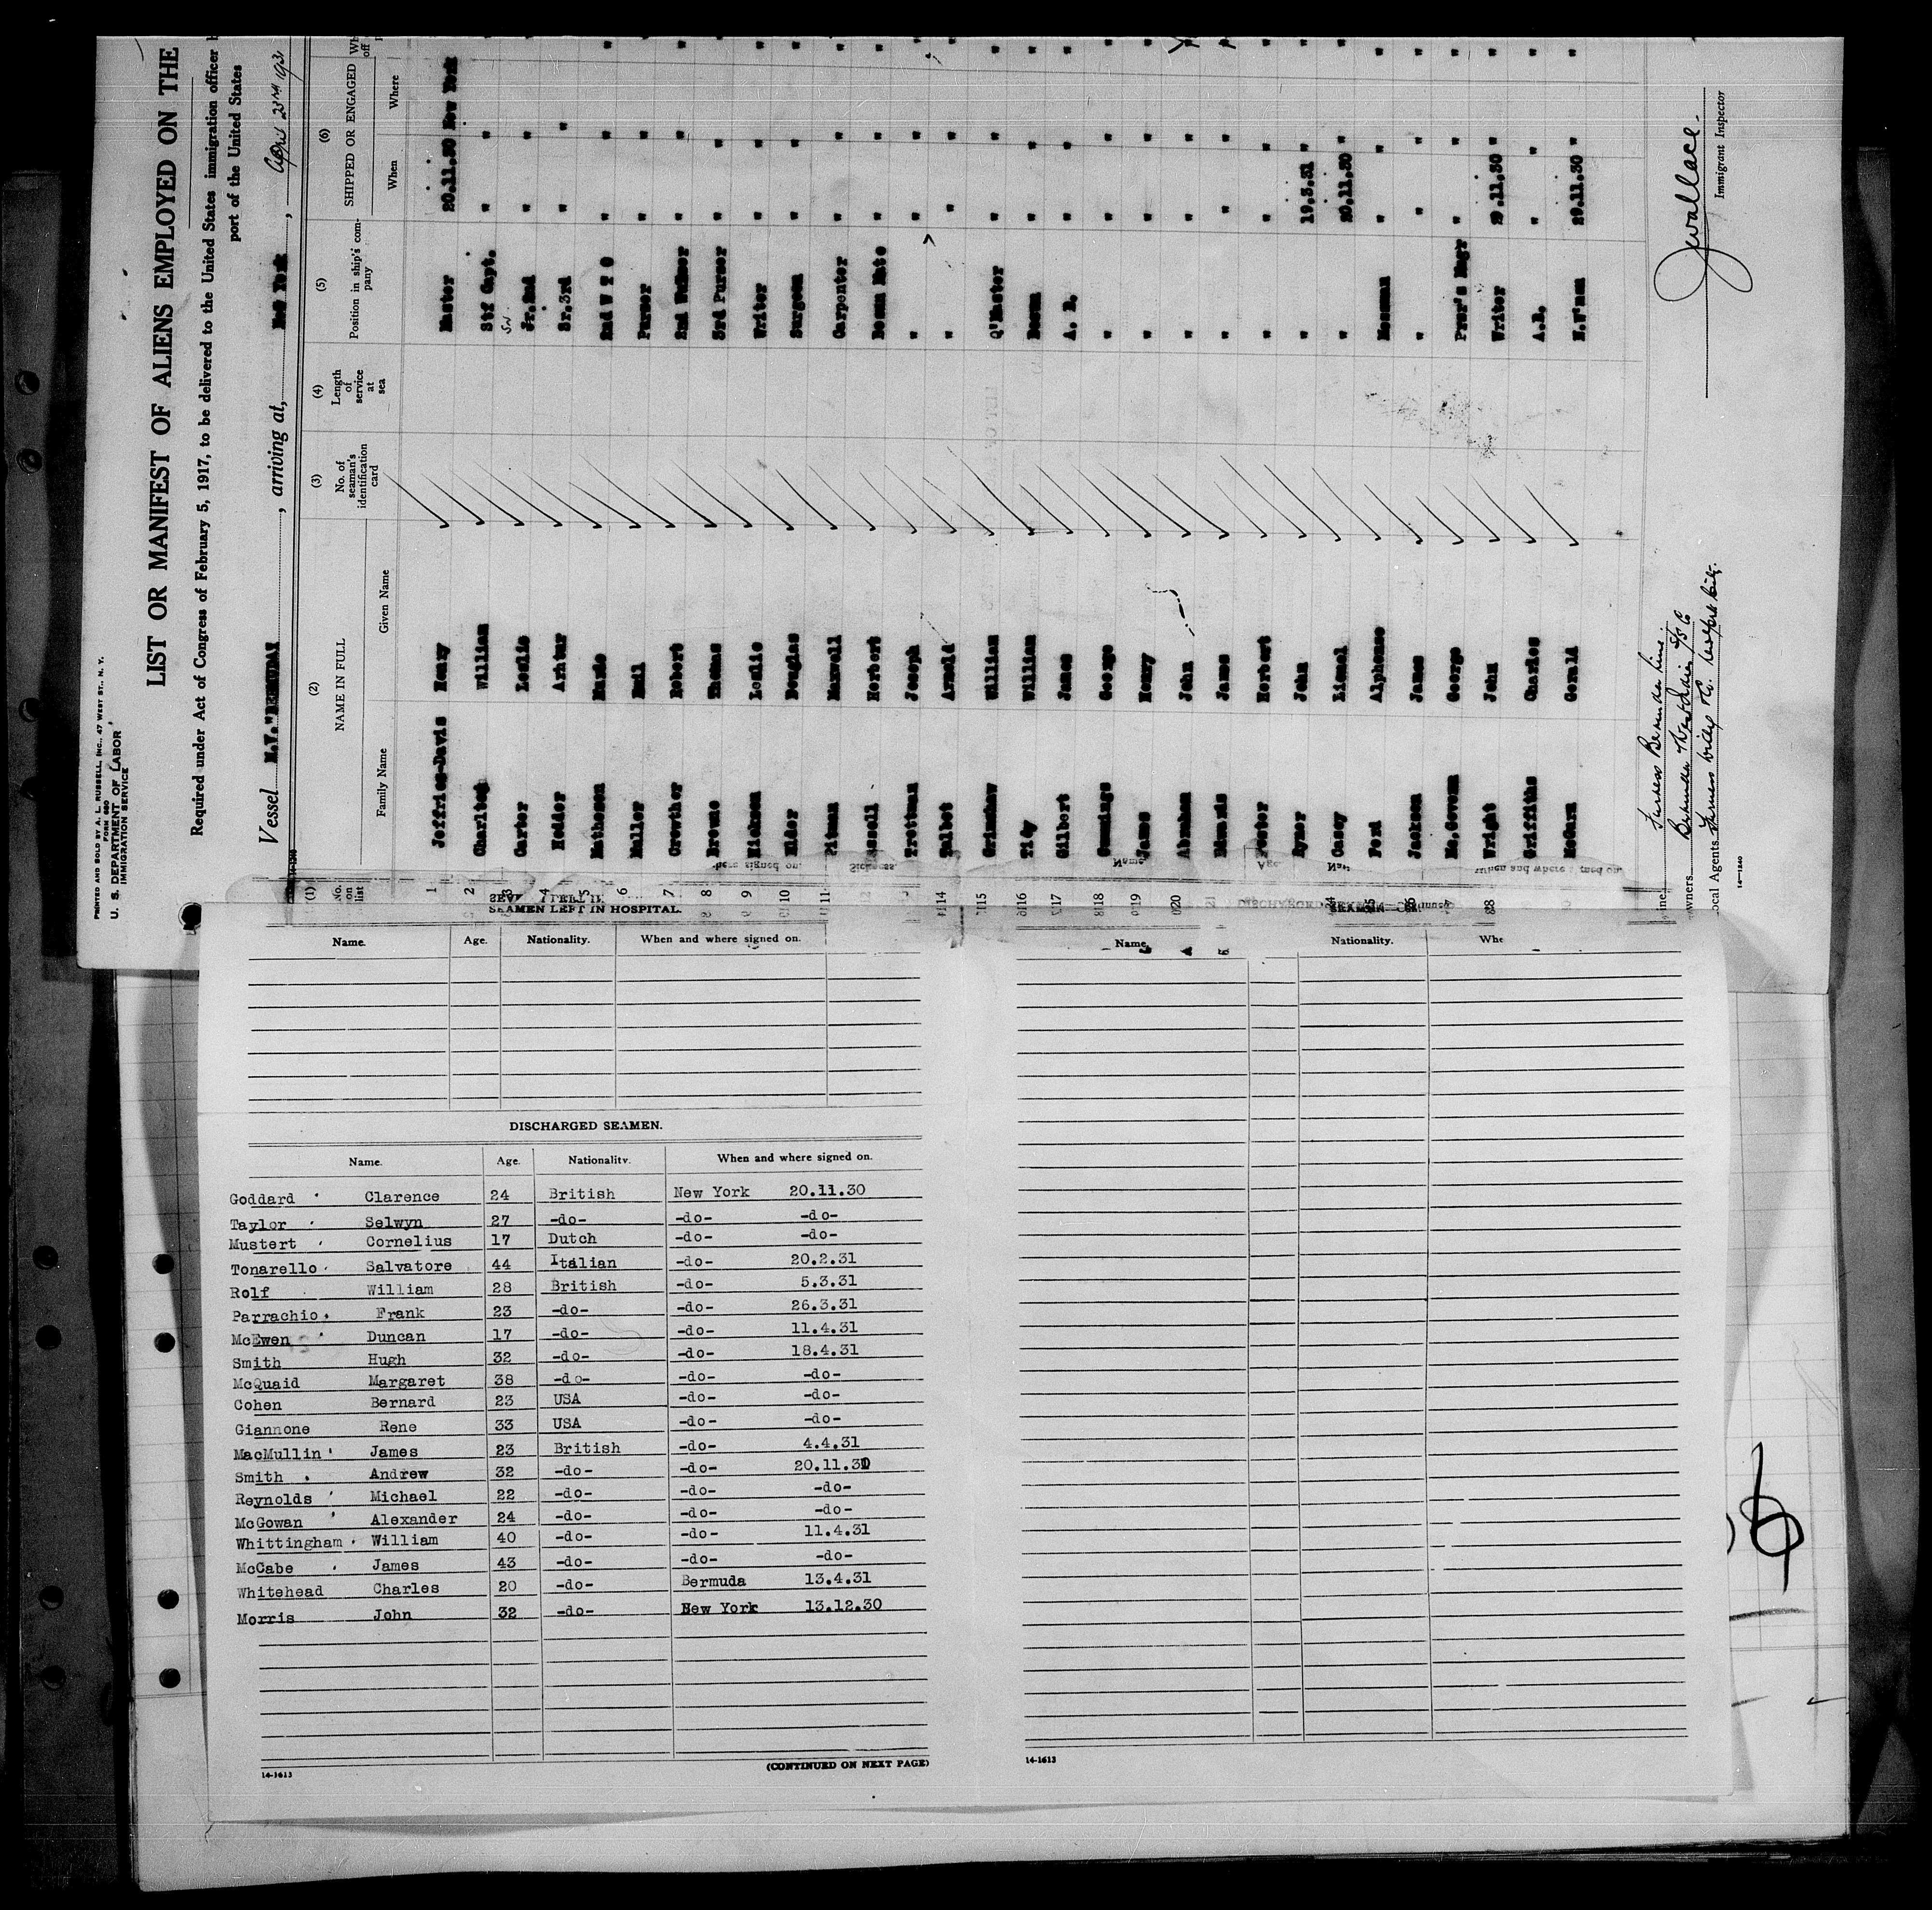 PRINTED AND SOLD BY A. L. RUSSELL, INC., 47 WEST ST., N. Y.
FORM 680
U. S. DEPARTMENT OF LABOR
IMMIGRATION SERVICE
LIST OR MANIFEST OF ALIENS EMPLOYED ON THE
Required under Act of Congress of February 5, 1917, to be delivered to the United States immigration officer
port of the United States
Vessel M.V."BERMUDA" , arriving at, New York , April 23rd 1931
(1) (2) (3) (4) (5) (6)
No. on list NAME IN FULL No. of seaman's identification card Length of service at sea Position in ship's company SHIPPED OR ENGAGED
Family Name Given Name When Where
1 Jeffries-Davis Henry Master 20.11.30 New York
2 Charlton William Stf Capt. " "
3 Carter Leslie Jr.2nd " "
4 Hedder Arhtur Sr.3rd " "
5 Matheson " "
6 Emil Purser " "
7 Crowther Robert " "
8 Browne Thomas 3rd Purser " "
9 Leslie Writer " "
10 Elder Douglas Surgeon " "
11 Pitman Maxwell Carpenter " "
Herbert Bosun Mate " "
Trottman Joseph " " "
14 Talbot Arnold " " "
15 Grimshaw William Q'Master " "
16 William Bosun " "
17 Gilbert James A. B. " "
18 Cummings George " " "
19 James Henry " " "
20 Abraham John " " "
James " " "
Foster Herbert " " "
Rymer John " 19.3.31 "
24 Casey Lionel " 20.11.30 "
25 Alphonso Messman " "
26 Jackson James " " "
Mc.Govern George " "
28 Wright John Writer 29.11.30 "
Griffiths Charles A.B. " "
McGurn Gerald 20.11.30 "
Line Furness Bermuda Line.
Owners Bermuda & West Indies S/S Co
Local Agents Furness Withy & Co.
14-1240
J Wallace.
Immigrant Inspector
SEAMEN LEFT IN HOSPITAL.
Name. Age. Nationality. When and where signed on.
Name. Nationality. Whe
DISCHARGED SEAMEN.
Name. Age. Nationality. When and where signed on.
Goddard Clarence 24 British New York 20.11.30
Taylor Selwyn 27 -do- -do- -do-
Mustert Cornelius 17 Dutch -do- -do-
Tonarello Salvatore 44 Italian -do- 20.2.31
Rolf William 28 British -do- 5.3.31
Parrachio Frank 23 -do- -do- 26.3.31
McEwen Duncan 17 -do- -do- 11.4.31
Smith Hugh 32 -do- -do- 18.4.31
McQuaid Margaret 38 -do- -do- -do-
Cohen Bernard 23 USA -do- -do-
Giannone Rene 33 USA -do- -do-
MacMullin James 23 British -do- 4.4.31
Smith Andrew 32 -do- -do- 20.11.30
Reynolds Michael 22 -do- -do- -do-
McGowan Alexander 24 -do- -do- -do-
Whittingham William 40 -do- -do- 11.4.31
McCabe James 43 -do- -do- -do-
Whitehead Charles 20 -do- Bermuda 13.4.31
Morris John 32 -do- New York 13.12.30
14-1613
(CONTINUED ON NEXT PAGE)
14-1613